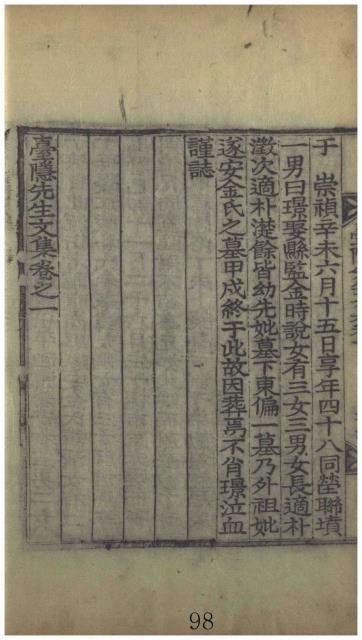 于　崇禎辛未六月十五日享年四十八同塋聯墳
一男曰璟娶縣監金時說女有三女三男女長適朴
澂次適朴漇餘皆幼先妣墓下東偏一墓乃外祖妣
遂安金氏之墓甲戌終于此故因葬焉不肖璟泣血
謹誌
臺隱先生文集卷之一
98